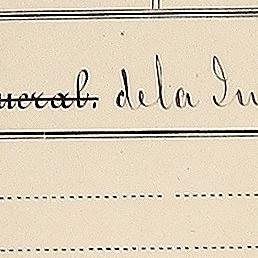 ueral. de la In